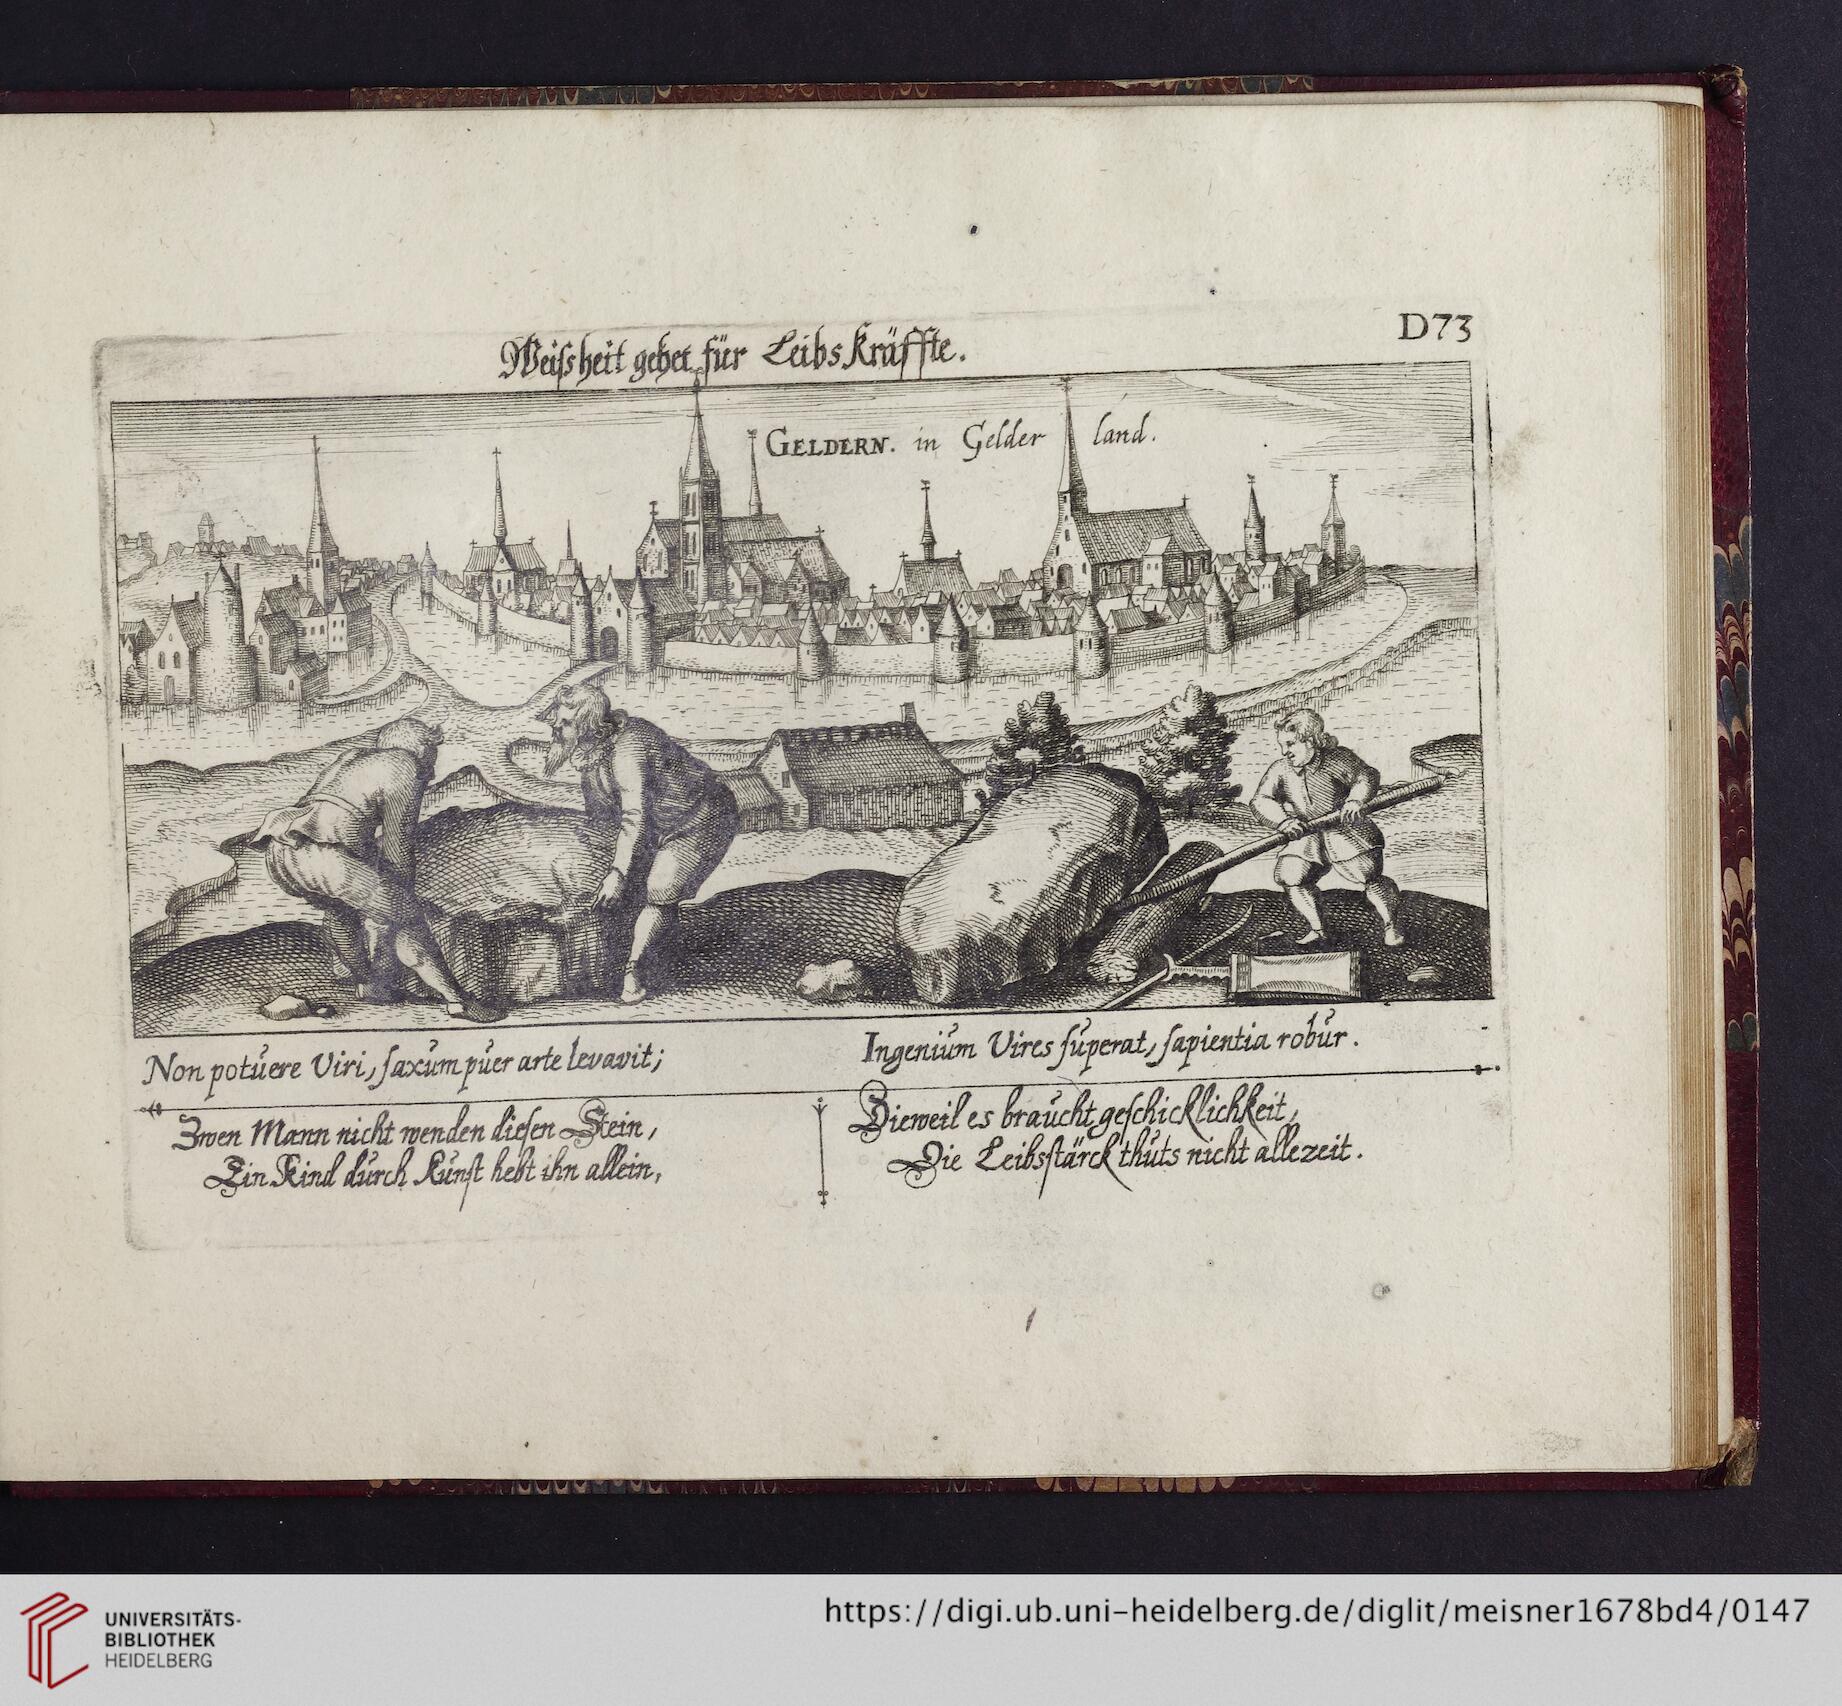 D73
Weiſsheit gehet für Leibs Kräffte.
GELDERN. in Gelder land.
Non potuere Viri, ſaxum puer arte levavit;
Ingenium Vires ſuperat, ſapientia robur.
Zwen Mann nicht wenden dieſen Stein,
Ein Kind durch Kunſt hebt ihn allein,
Dieweil es braucht geſchicklichkeit,
Die Leibsſtärck thuts nicht allezeit.
UNIVERSITÄTS-
BIBLIOTHEK
HEIDELBERG
https://digi.ub.uni-heidelberg.de/diglit/meisner1678bd4/0147